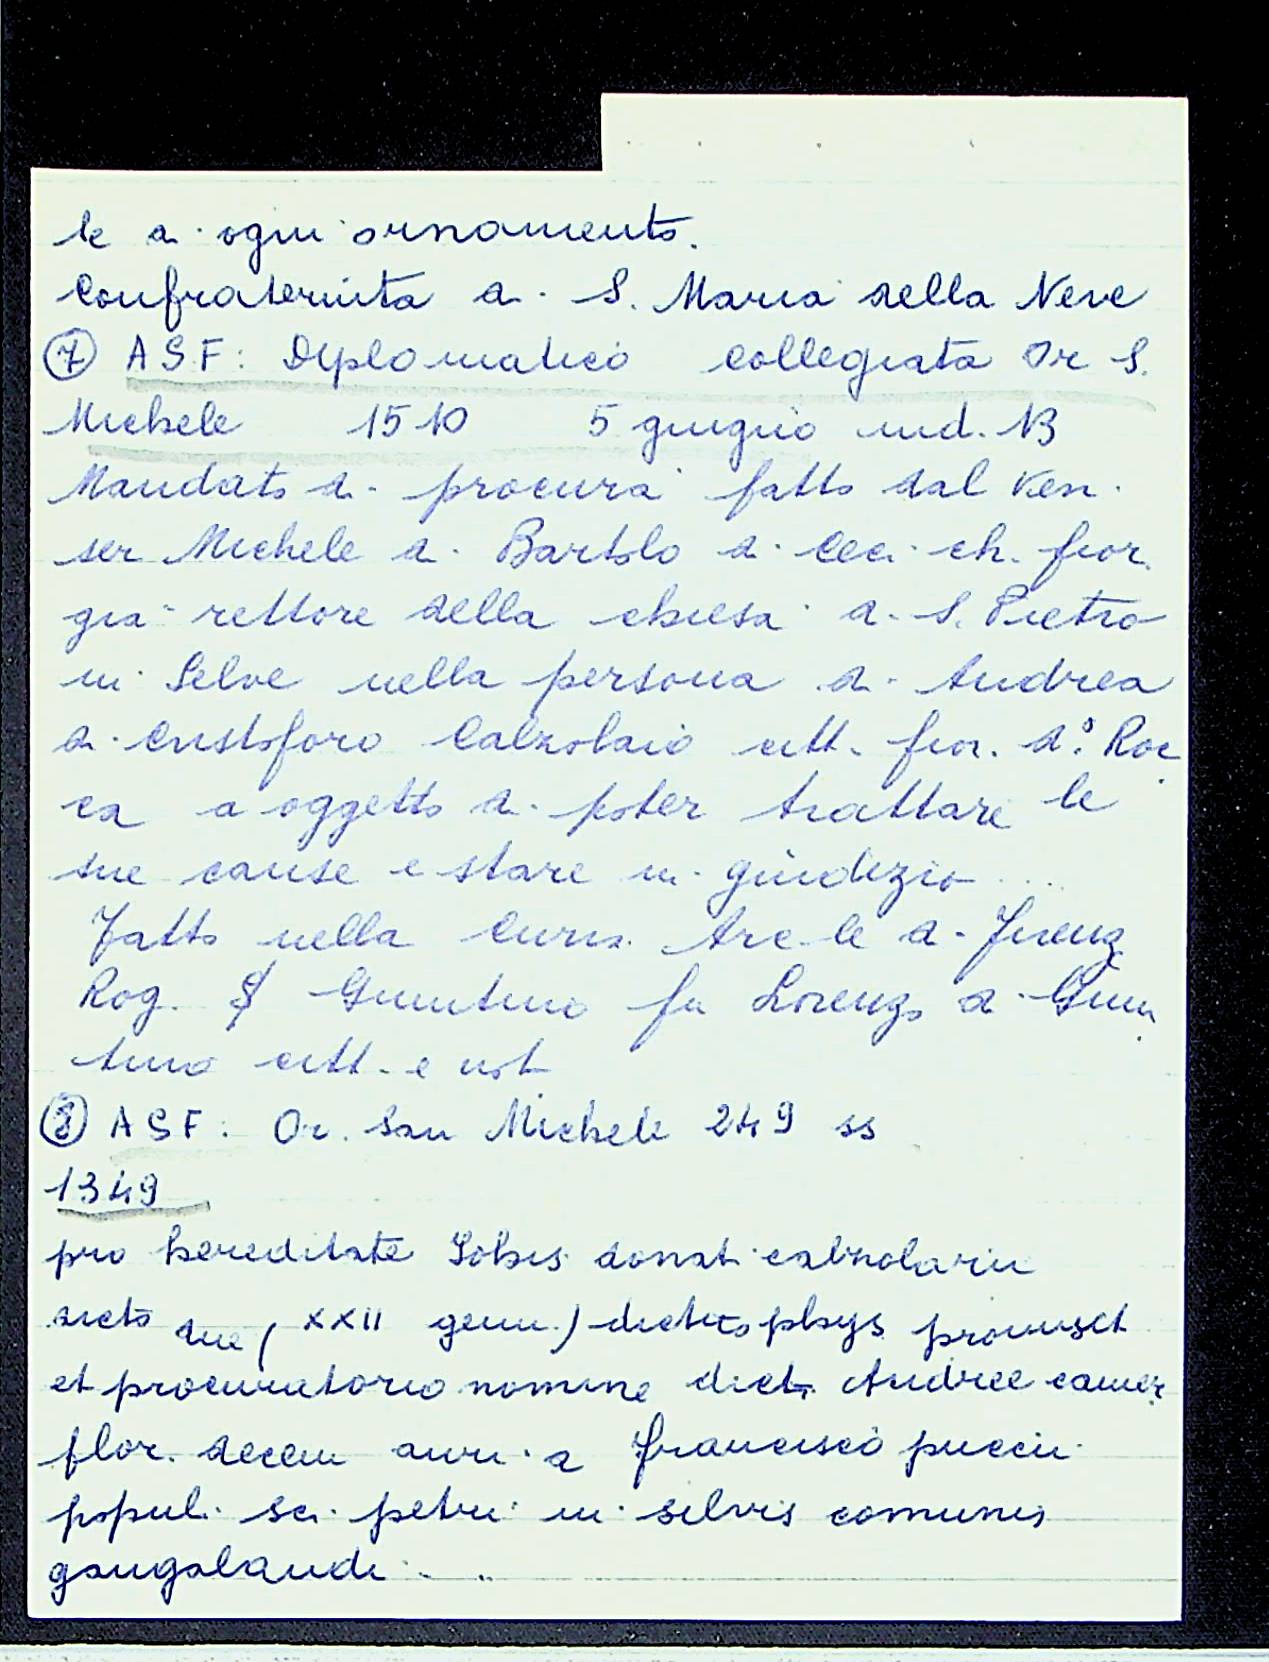 te di ogni ornamento.
Confraternita di S. Maria della Neve
⑦ ASF: Diplomatico Collegiata Or S.
Michele 1510 5 giugno ind. 13
Mandato di procura fatto dal Ven.
ser Michele di Bartolo di Ceci ch. fior.
già rettore della chiesa di S. Pietro
in Selve nella persona di Andrea
di Cristoforo Calzolaio citt. fior. d.º Roc
ca a oggetto di poter trattare le
sue cause e stare in giudizio ....
Fatto nella Curia Arc-le di Firenz
Rog. Giuntino fu Lorenzo di Giun
tino citt. e not
⑧ ASF: Or. San Michele 249 ss
1349
pro hereditate Johis donati calzolarii
dicto die (XXII genn.) phys promisit
et procuratorio nomine dicti Andree camer
flor. decem auri a Francisco puccii
populi sci petri in silvis comunis
gangalandi . ..